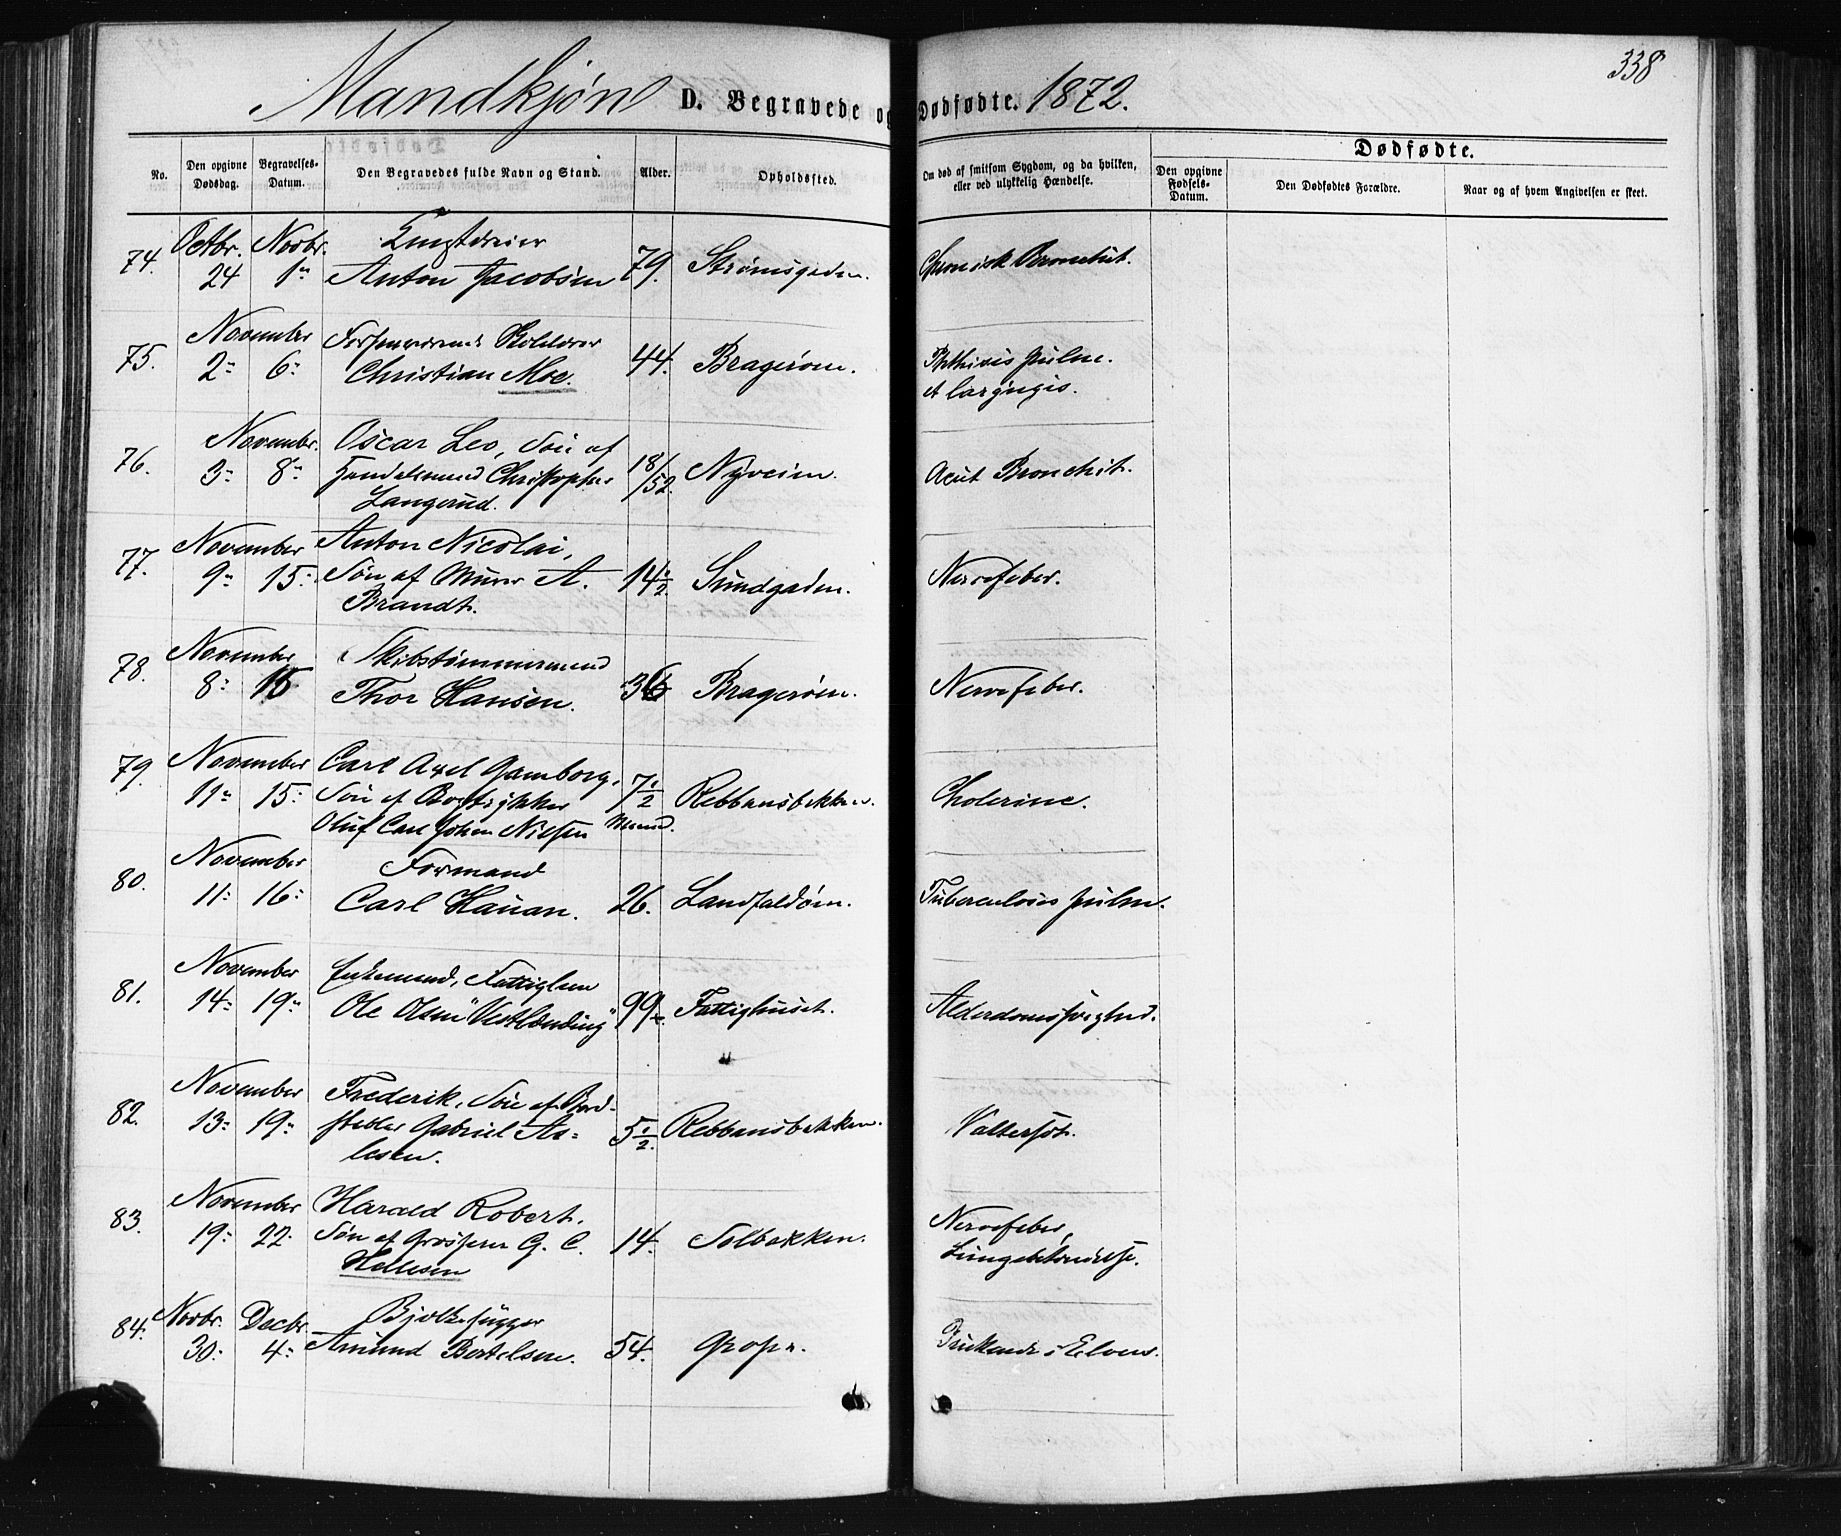 338
Mandkjøn D. Begravede og Dødfødte. 1872.
No. Den opgivne Dødsdag. Begravelses-Datum. Den Begravedes fulde Navn og Stand. Alder. Opholdssted. Om død af smitsom Sygdom, og da hvilken, eller ved ulykkelig Hændelse. Dødfødte.
Den opgivne Fødsels-Datum. Den Dødfødtes Forældre. Naar og af hvem Angivelsen er skeet.
Octbr. Novbr.
74. 24 1 Anton Jacobsen 79. Strømsgaden. Chronisk Bronchit.
November Forhenværende
75. 2 6 Christian Moe. 44. Bragerøen. Phthisis pulm.
et laryngis.
Novembr. Oscar Leo, Søn af
76. 3 8 Handelsmand Christopher 18/52. Nyveien. Acut Bronchit.
Langerud.
November Anton Nicolai,
77. 9 15 Søn af Murer A. 14½ Sundgaden. Nervefeber.
Brandt.
November Skibstømmermand
78. 8 15 Thor Hansen. 36 Bragerøen. Nervefeber.
November Carl Axel Gamborg,
79. 11 15 Søn af Bogtrykker 7½ Rebbansbakken. Cholerine.
Oluf Carl Johan Nielsen Maaned.
November Formand
80. 11 16 Carl Hauan. 26. Landfaldøen. Tuberculosis pulm.
November Enkemand, Fattiglem
81. 14 19 Ole Olsen "Vestlænding" 99 Fattighuset. Alderdomssvaghed.
November Frederik, Søn af Bord-
82. 13 19 stabler Gabriel As- 5½ Rebbansbakken. Vattersot.
lesen.
November Harald Robert,
83. 19 22 Søn af Grosserer G. C. 14. Solbakken. Nervefeber,
Hellesen Lungebetændelse.
Novbr. Decbr. Bjelkehugger
84. 30 4 Amund Bertelsen. 54. Gropa. Druknende i Elven.